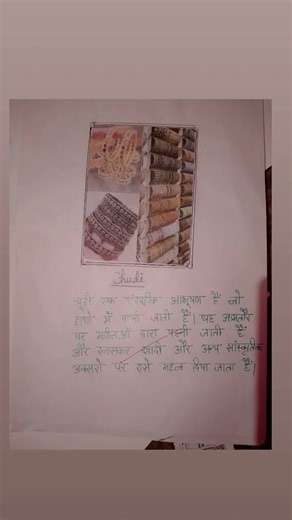 Chudi
चूड़ी एक पारंपरिक आभूषण है जो
हाथों में पहनी जाती है। यह आमतौर
पर महिलाओं द्वारा पहनी जाती है
और खासकर शादी और अन्य सांस्कृतिक
अवसरों पर इसे महत्व दिया जाता है।